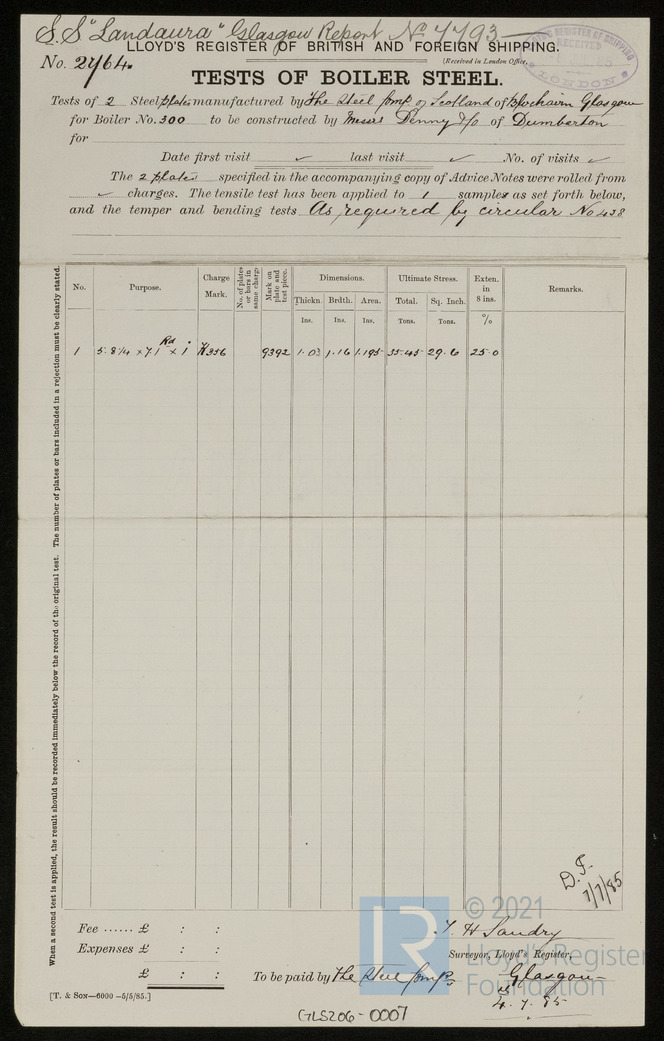 S.S "Landaura" Glasgow Report No 7793
LLOYD'S REGISTER OF BRITISH AND FOREIGN SHIPPING.
RECEIVED
LONDON
No. 2764.
(Received in London Office,
TESTS OF BOILER STEEL.
Tests of 2 Steel plates manufactured by The Steel Compy of Scotland of Blochairn Glasgow
for Boiler No. 300 to be constructed by Messrs Denny & Co of Dumbarton
for
Date first visit ✓ last visit ✓ No. of visits ✓
The 2 plates specified in the accompanying copy of Advice Notes were rolled from
✓ charges. The tensile test has been applied to 1 samples as set forth below,
and the temper and bending tests As required by circular No 438
When a second test is applied, the result should be recorded immediately below the record of the original test. The number of plates or bars included in a rejection must be clearly stated.
No. Purpose. Charge Mark. No. of plates or bars in same charge Mark on plate and test piece. Dimensions. Ultimate Stress. Exten. in 8 ins. Remarks.
Thickn. Brdth. Area. Total. Sq. Inch.
Ins. Ins. Ins. Tons. Tons. %
1 5.8 1/4 × 7.1 Rd × 1 K356 9392 1.03 1.16 1.195 35.45 29.6 25.0
D.F.
7/7/85
Fee ...... £ : :
Expenses £ : :
£ : :
T H Sandry
Surveyor, Lloyd's Register,
To be paid by The Steel Compy. Glasgow
4.7.85
[T. & SON—6000—5/5/85.]
GLS206-0007
LR
© 2021
Lloyd's Register
Foundation